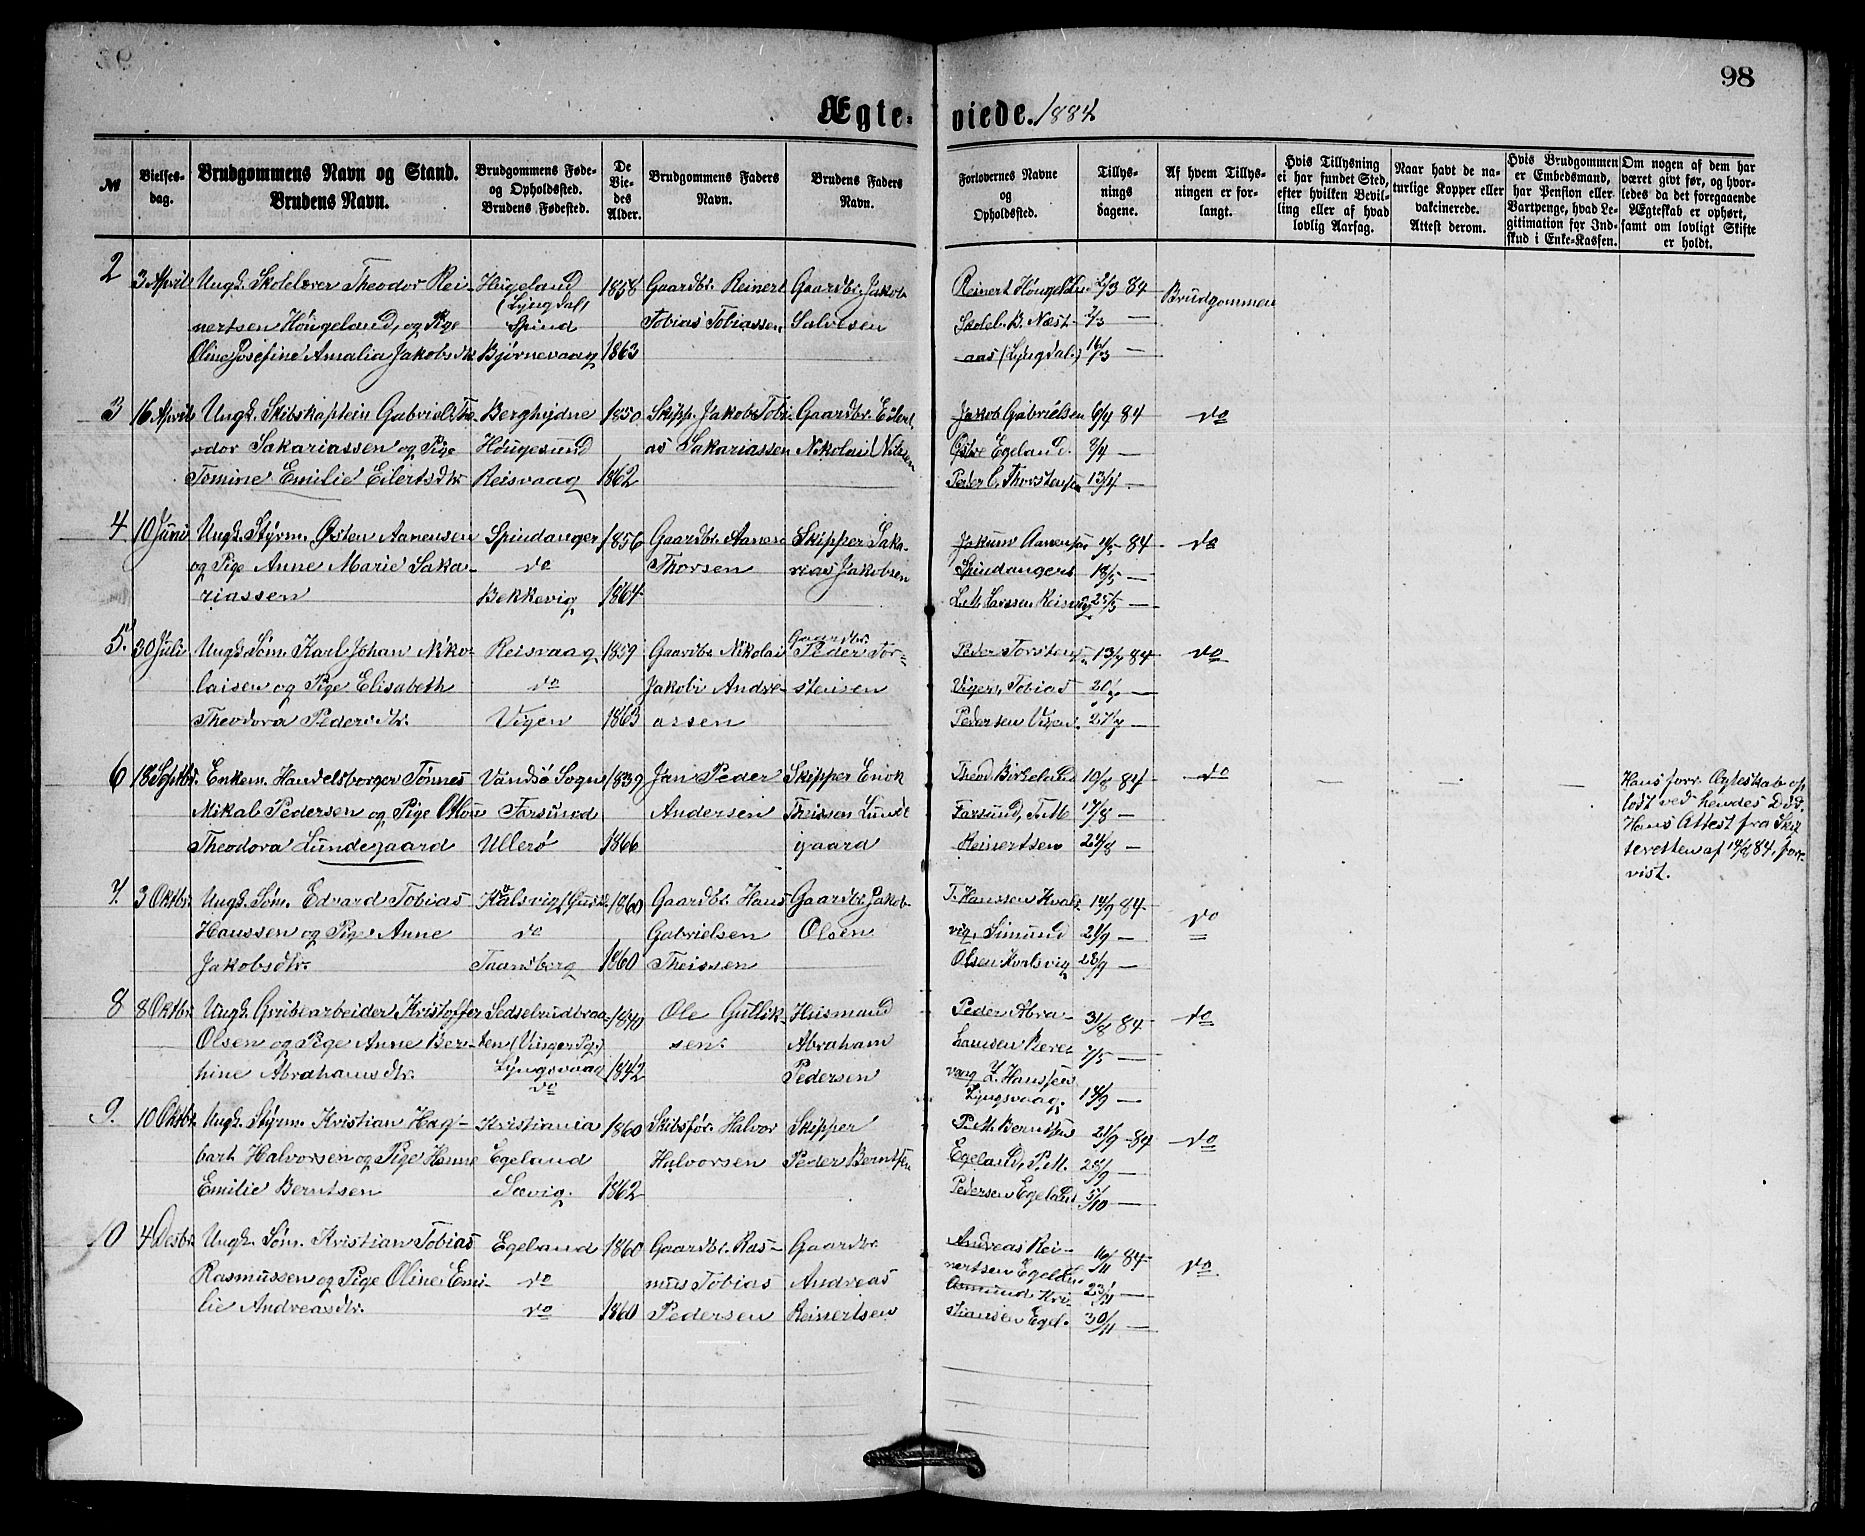 98
Ægte-viede. 1884
№
Vielses-
dag.
Brudgommens Navn og Stand.
Brudens Navn.
Brudgommens Føde-
og Opholdssted.
Brudens Fødested.
De
Vie-
des
Alder.
Brudgommens Faders
Navn.
Brudens Faders
Navn.
Forlovernes Navne
og
Opholdssted.
Tillys-
nings
dagene.
Af hvem Tillys-
ningen er for-
langt.
Hvis Tillysning
ei har fundet Sted,
efter hvilken Bevil-
ling eller af hvad
lovlig Aarsag.
Naar havt de na-
turlige Kopper eller
vakcinerede.
Attest derom.
Hvis Brudgommen
er Embedsmand,
har Pension eller
Vartpenge, hvad Le-
gitimation for Ind-
skud i Enke-Kassen.
Om nogen af dem har
været givt før, og hvor-
ledes da det foregaaende
Ægteskab er ophørt,
samt om lovligt Skifte
er holdt.
2 3 April Ungk. Skolelærer Theodor Rei- Hügeland 1858 Gaardbr. Reinert Gaardbr. Jakob Reinert 2/3 84 Brudgommen
(Lyngdal)
nertsen Höugeland, og Pige Spind Tobias Tobiassen Salvesen B. Næst- —
Oline Josefine Amalia Jakobsdtr. Bjørnevaag 1863 aas (Lyngdal.) 16/3 —
3 16 April Ungk. Skibskaptein Gabriel Te- 1850 Skipp. Jakob Tobi- Gaardbr. Eilert Jakob Gabrielsen 6/4 84 do
odor Sakariassen og Pige Höugesund as Sakariassen Nikolai Nilsen Egeland. —
Tomine Emilie Eilertsdtr. Reisvaag 1862 Peder C. Thorstensen 13/4 —
4 10 Juni Ungk. Styrm. Østen Aanensen Spindanger 1856 Gaardbr. Aanen Skipper Saka- Aanensen 84 do
og Pige Anne Marie Saka- do Thorsen rias Jakobsen Spindanger 18/5 —
riassen Bekkevig 1864 L. M. Larssen 25/5 —
5. 30 Juli Ungk. Søm. Karl Johan Niko- Reisvaag 1859 Gaardbr. Nikolai Gaardbr. Peder Tor- Peder Torsten- 13/7 84 do
laisen og Pige Elisabeth do Jakobi Andre- stensen Vigen, Tobias 20/7 —
Theodora Pedersdtr. Vigen 1863 assen Pedersen Vigen. 27/7 —
6 18 Septbr. Enkem. Handelsborger Tønnes Vandsø Sogn 1839 Jan Peder Skipper Enok Theod. Birkeland 10/8 84 do — — — Hans forr. Ægteskab op-
Mikal Pedersen og Pige Farsund Andersen Theissen Lunde- Farsund, T. M. 17/8 — løst ved hendes Død.
Theodora Lundegaard Ullerø 1866 gaard Reinertsen 24/8 — Hans Attest fra Skif-
teretten af 84, fore-
vist.
7. 3 Oktbr. Ungk. Søm. Edvard Tobias 1860 Gaardbr. Hans Gaardbr. Jakob T. Hanssen Kvals- 14/9 84 do
Hanssen og Pige Anne do Gabrielsen Olsen vig, Simund 21/9 —
Jakobsdtr. Taansberg 1860 Theissen Olsen 28/9 —
8 8 Oktbr. Ungk. Grubearbeider Kristoffer 1840 Ole Gullik- Husmand Peder Abra- 31/8 84 do
Olsen og Pige Anne Ber- sen. Abraham hamsen —
thine Abrahamsdtr. Lyngsvaag 1842 Pedersen Z. Hanssen
do Lyngsvaag. 14/9 —
9. 10 Oktbr. Ungk. Styrm. Kristian Hag- Kristiania 1860 Skibsfør. Halvor Skipper P. M. Berntsen 21/9 84 do
bart Halvorsen og Pige Hanne Egeland Halvorsen Peder Berntsen Egeland, P. M. 28/9 —
Emilie Berntsen Sævig. 1862 Pedersen Egeland 5/10 —
10 4 Desbr. Ungk. Søm. Kristian Tobias Egeland 1860 Gaardbr. Ras- Gaardbr. Andreas Rei- 16/11 84 do
Rasmussen og Pige Oline Emi- do mus Tobias Andreas nertsen Egeland
lie Andreasdtr. do 1860 Pedersen Reinertsen Kri- 23/11 —
stiansen Egel. 30/11 —